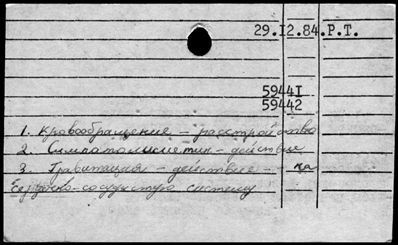 29.I2.84.P.T.
5944I
59442
1. Кровообращение – расстройство
2. Симпатомиметик – действие
3. Гравитация – действие – на
сердечно-сосудистую систему